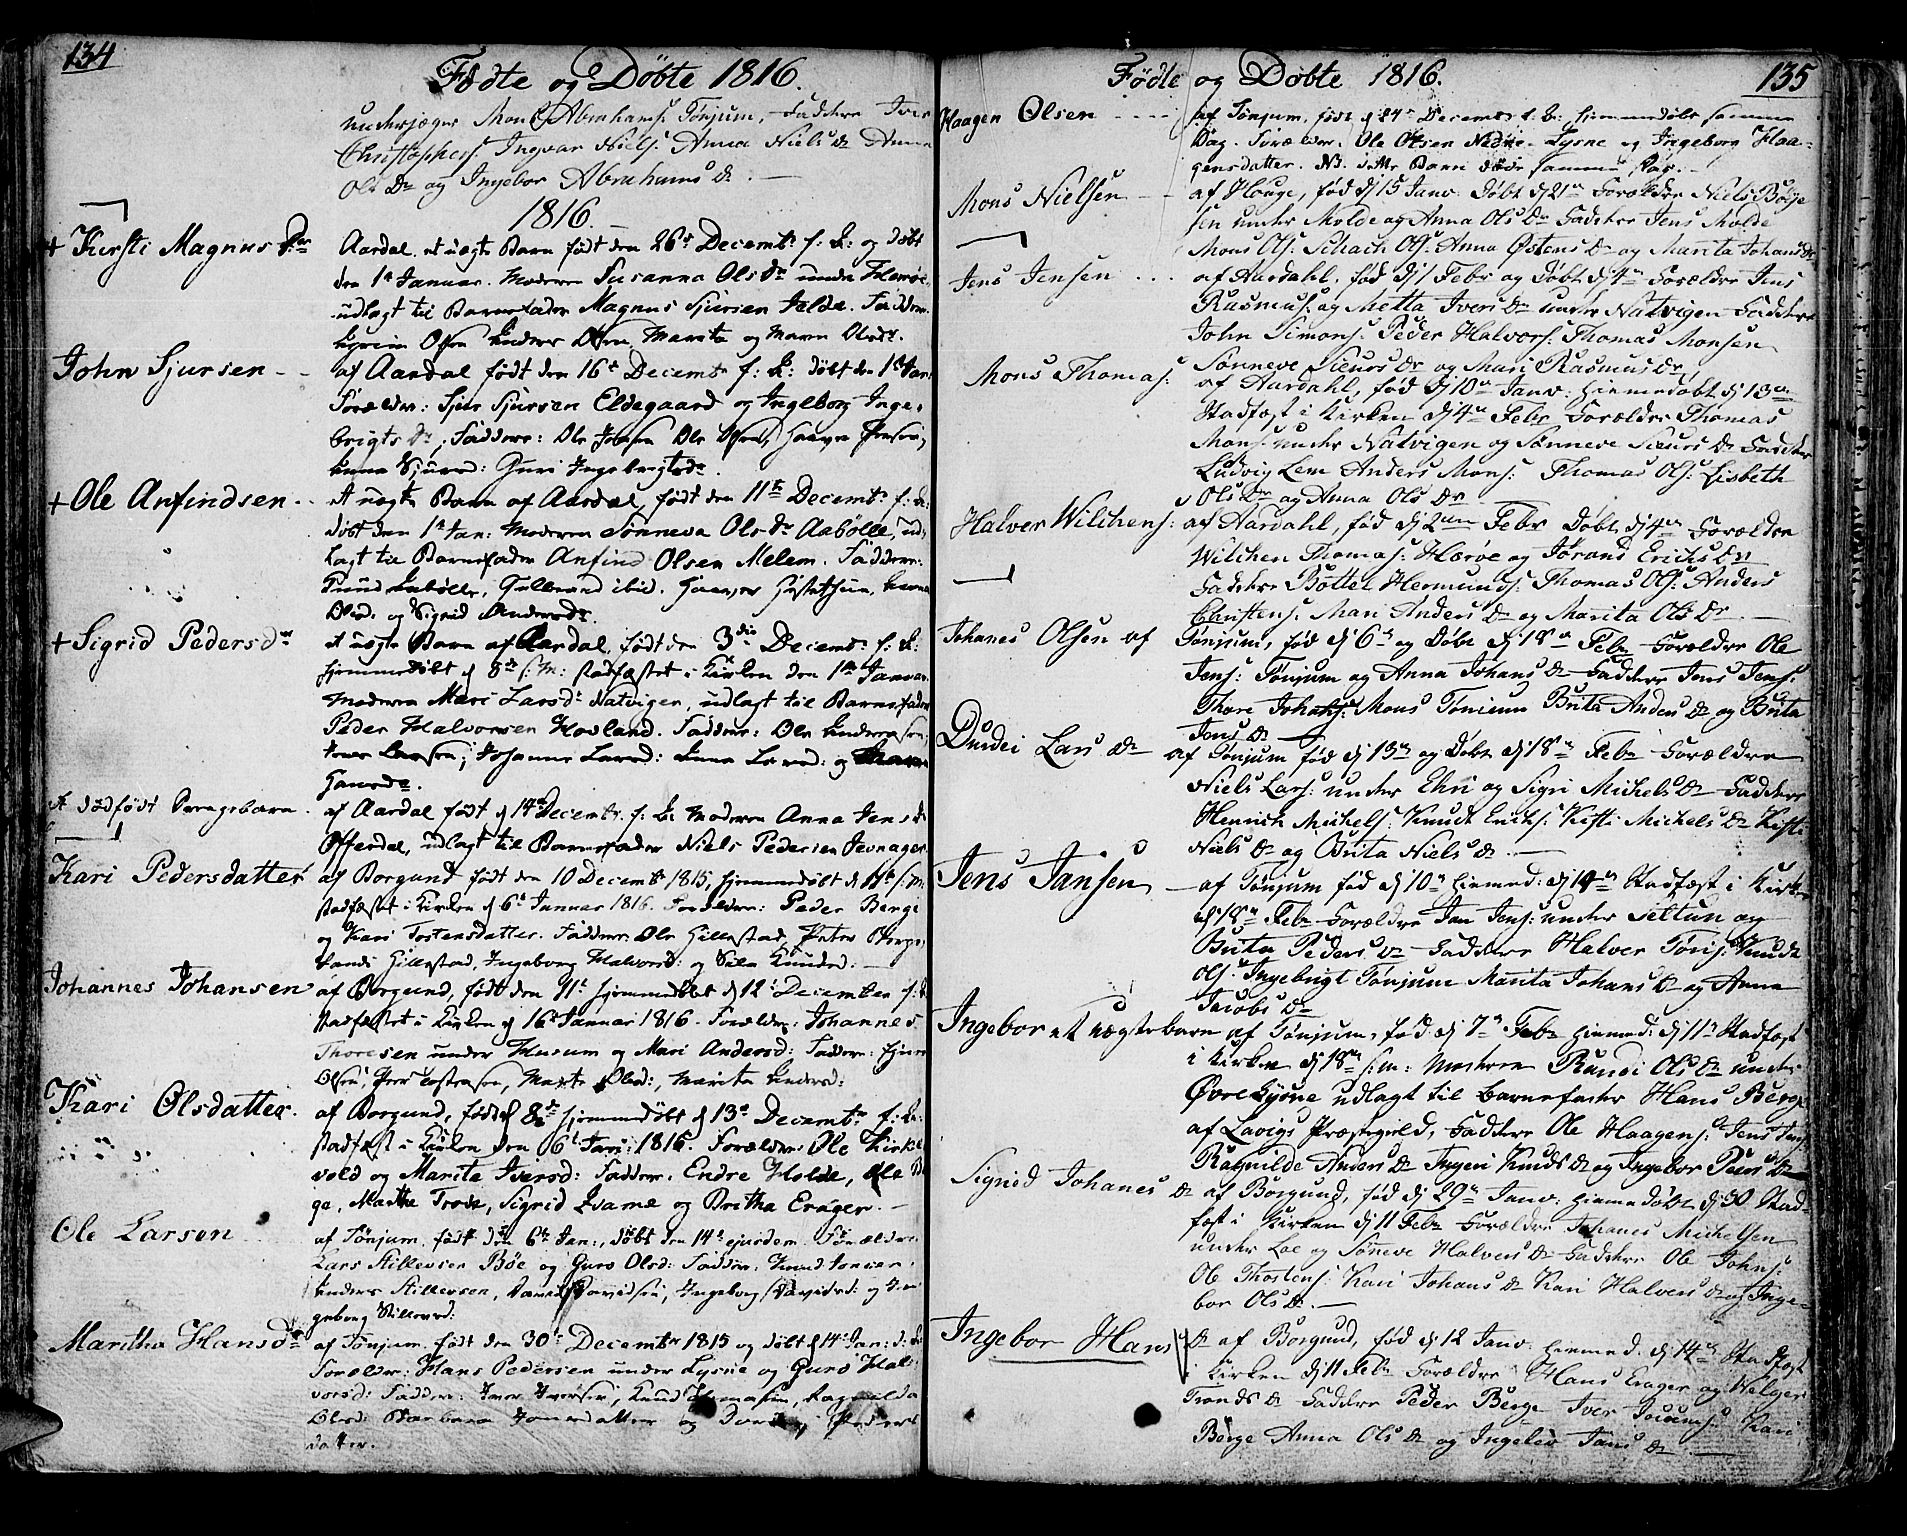 134
Fødte og Døbte 1816.
underjæger Mons Abrahams: Tønjum, Faddere Iver
Christophers: Ingvar Niels: Anna Niels Dr Anna
Ols Dr og Ingebor Abrahams Dr.
1816.
+ Kirsti Magnus Dr Aardal, et uægte Barn født den 26de Decembr f: A: og døbt
den 1te Januar. Moderen Susanna Ols Dr under
udlagt til Barnefader Magnus Sjursen Jelde. Faddere
Olsen Anders Olsen, Marita og Maren Olsdr.
John Sjursen - - af Aardal født den 16de Decembr f: A: døbt den 1te Jan:
Forældre: Sjur Sjursen Eldegaard og Ingeborg Inge-
brigts Dr, Faddere: Ole Ole Olsen,
Anna Sjursd: Guri Ingebrigtsdr.
+ Ole Anfindsen - - et uægte Barn af Aardal, født den 11te Decembr f: A:
døbt den 1te Jan: Moderen Sønneva Ols Dr Aabølle, ud-
lagt til Barnefader Anfind Olsen Melem. Faddere:
ibid.
Olsd. og Sigrid Andersdr.
+ Sigrid Pedersdr et uægte Barn af Aardal, født den 3die Decembr f: A:
hjemmedøbt d 8de s: M: stadfæstet i Kirken den 1te Januar
Moderen Mari Larsdr Natvigen, udlagt til Barnefader
Peder Halvorsen Hovland. Faddere: Ole Andersen,
Johanne Larsd: Anna Larsd: og
Hansdr.
Et dødfødt Drengebarn. af Aardal født d 14de Decembr f: A: Moderen Anna Jens Dr
Offerdal, udlagt til Barnefader Niels Pedersen Jevnager
Kari Pedersdatter af Borgund født den 10 Decembr 1815, hjemmedøbt d 11te s: M.
stadfæstet i Kirken d 6te Januar 1816. Forældre: Peder Berge
og Kari Torstensdatter. Faddere: Ole Gillestad, Peter Berge,
Gillestad, Ingeborg Halvorsd: og Knudsd:
Johannes Johansen af Borgund, født den 11te hjemmedøbt d 12te December f: A:
stadfæstet i Kirken d 16de Januar 1816. Forældre: Johannes
Thoresen under Husum og Mari Andersd: Faddere:
Olsen, Marita Andersd:
Kari Olsdatter. af Borgund, født d 8de hjemmedøbt d 13de Decembr f: A:
stadfæst i Kirken den 6te Jan: 1816. Forældre Ole Kirke
vold og Marita Iversd: Faddere: Endre Holde, Ole Ber
ge, Marthe Sigrid Kvame og Britha Eråger.
Ole Larsen af Tønjum, født den 6te Jan:, døbt den 14de ejusdem. Forældre
Lars Stillevsen Bøe og Guro Olsd: Faddere:
Anders Stillevsen, Davidsen, Ingeborg Davidsd: og In-
geborg Stillevsd:
Maritha Hansdr af Tønjum født den 30te Decembr 1815 og døbt d 14de Jan: d: A:
Forældre: Hans Pedersen under Lysne og Guro Hal-
vorsd: Faddere: Iver Iversen, Knud Thomasen, Ragnilda
Olsd: Barbara og Peders
datter.
135
Fødte og Døbte 1816.
Haagen Olsen - - - - af Tønjum, født d 24de Decembr f. A: hjemmedøbt samme
Dag. Forældre. Ole Olsen Nedre-Lysne og Ingeborg Haa-
gensdatter. NB. dette Barn døde samme Dag.
Mons Nielsen - - af Houge, fød dj 15 Janv. Døbt dj 21de Forældre Niels Børge
sen under Molde og Anna Ols Dr Faddere Jens Molde
Mons Ols: Schach Ols: Anna Østens Dr og Marita Johans Dr
Jens Jensen - - - af Aardahl. fød dj 1 Febr og Døbt dj 4de Forældre Jens
Rasmus: og Metta Ivers Dr under Natvigen Faddere
John Simons: Peder Halvors: Thomas Monsen
Sønneve Siurs Dr og Mari Rasmus Dr
Mons Thomas: af Aardahl, fød dj 10de Janv. hiemedøbt dj 13de
Stadfæst i Kirken dj 4de Febr Forældre Thomas
Mons: under Natvigen og Sønneve Siurs Dr Faddere
Ludvig Lem Anders Mons: Thomas Ols: Lisbeth
Ols Dr og Anna Ols Dr
Halver Wilchens: af Aardahl, fød dj 2den Febr Døbt dj 4de Forældre
Wilchen Thomas: Hærøe og Jørand Erichs Dr
Faddere Bottel Hermunds: Thomas Ols: Anders
Christens: Mari Anders Dr og Marita Ols Dr
Johanes Olsen af Tønjum, fød dj 6de og Døbt dj 18de Febr Forældre Ole
Jens: Tønjum og Anna Johans Dr Faddere Jens Jens:
Thore Johans: Mons Tønjum Brita Anders Dr og Brita
Jens Dr
Durdei Lars Dr af Tønjum fød dj 13de og Døbt dj 18de Febr Forældre
Niels Lars: under Ehri og Sigri Michels Dr Faddere
Henrich Michels: Knudt Erichs: Kisti Michels Dr Kisti
Niels Dr og Brita Niels Dr.
Jens Jansen - af Tønjum fød dj 10de hiemed: dj Stadfæst i Kirk
dj 18de Febr Forældre Jan Jens: under Seltun og
Brita Peders Dr Faddere Halver Tøris: Knudt
Ols: Ingebrigt Tønjum Marita Johans Dr og Anna
Jacobs Dr
Ingebor et uægtebarn af Tønjum, fød dj 7de Febr hiemed: dj 11te Stadfæst
i Kirken dj 18de s: m: Moderen Randi Ols Dr under
Øvre Lysne udlagt til Barnefader Hans Berge
af Lavigs Præstegield, Faddere Ole Haagens: Jens Jens
Ragnilde Anders Dr Ingeri Knuds Dr og Ingebor Peers Dr
Sigrid Johanes Dr af Borgund, fød dj 29de Janv: hiemedøbt dj 30 Stad-
fæst i Kirken dj 11 Febr Forældre Johanes Michelsen
under Loe og Søneve Halvers Dr Faddere Ole Johns:
Ole Thostens: Kari Johans Dr Kari Halvers Dr og Inge-
bor Ols Dr.
Ingebor Hans Dr af Borgund, fød dj 12 Janv. hiemed: dj 14de Stadfæst
i Kirken dj 11 Febr Forældre Hans Erager og Velger
Tronds Dr Faddere Peder Berge Iver Kari
Berge Anna Ols Dr og Ingeler Jans Dr